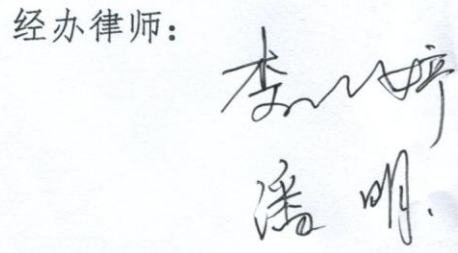 经办律师：
李
潘明